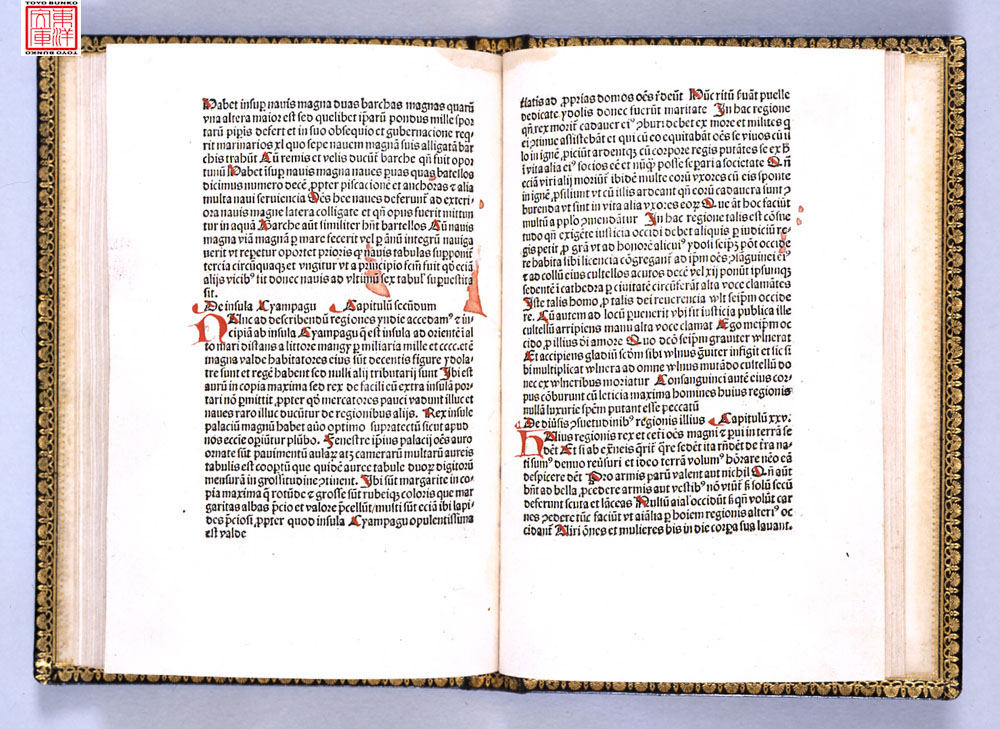 TOYO BUNKO
東洋
文庫
TOYO BUNKO
Habet insuꝑ nauis magna duas barchas magnas quarū
vna altera maior est sed quelibet iꝑarū pondus mille spor
tarū pipis defert et in suo obsequio et gubernacione reqͥ
rit marinarios xl quo sepe nauem magnā suis alligatā bar
chis trahūt Cū remis et velis ducūt barche qn̄ suit opor
tunū Habet insuꝑ nauis magna naues ꝑuas quas batellos
dicimus numero decē ꝓpter piscacionē et anchoras ⁊ alia
multa naui seruiencia Oēs hee naues deferunt̄ ad exteri-
ora nauis magne latera colligate et qn̄ opus fuerit mittun
tur in aquā Barche aūt similiter hn̄t bartellos Cū nauis
magna viā magnā ꝑ mare fecerit vel ꝑ ānū integrū nauiga
uerit vt reꝑetur oportet prioris qͣ nauis tabulas supponit̄
tercia circūquaqꝫ et vngitur vt a principio scm̄ fuit qd̓ eciā
alijs vicibꝰ fit donec nauis ad vltimū sex tabulꝭ suꝑuestita
sit.
De insula Cyampagu Capitulū secūdum
Nunc ad describendū regiones yndie accedamꝰ ⁊ in-
cipiā ab insula Cyampagu q̄ est insula ad orientē ī al
to mari distans a littore mangy ꝑ miliaria mille et cccc. et ē
magna valde habitatores eius sūt decentis figure ydola-
tre sunt et regē habent sed nulli alij tributarij sunt Ibi est
aurū in copia maxima sed rex de facili eū extra insulā por-
tari nō ꝑmittit ꝓpter qd̓ mercatores pauci vadunt illuc et
naues raro illuc ducūtur de regionibus alijs. Rex insule
palaciū magnū habet auō optimo supratectū sicut apud
nos eccie oꝑiūtur plūbo. Fenestre iꝑius palacij oēs auro
ornate sūt pauimentū aularꝫ atqꝫ camerarū multarū aureis
tabulis est cooꝑtū que quidē auree tabule duorꝫ digitorū
mensurā in grossitudine ꝯtinent. Ibi sūt margarite in co-
pia maxima q̄ rotūde ⁊ grosse sūt rubeiqꝫ coloris que mar
garitas albas p̄cio et valore p̄cellūt/ multi sūt eciā ibi lapi-
des p̄ciosi. ꝓpter quod insula Cyampagu opulentissima
est valde
elatis ad ꝓprias domos oēs r̄deūt Hūc ritū ẜuāt puelle
dedicate ydolis donec fuerūt maritate In hac regione
qn̄. rex moritͬ cadauer eiꝰ ꝯburi debet ex more et milites qͥ
ei ꝯtinue assistebāt et qui cū eo equitabāt oēs se viuos cū il
lo in ignē ꝓiciunt ardentqꝫ cū corpore regis putātes se ex hͨ
ī vita alia eiꝰ socios eē et nūqͣꝫ posse se̓pari a societate Qn̄
eciā viri alij moriūtͬ ibidē multe eorū vxores cū eis sponte
in ignē ꝓsiliunt vt cū illis ardeant qn̄ eorū cadauera sunt ꝯ
burenda vt sint in vita alia vxores eorꝫ Que āt hoc faciūt
multū a pp̄lo ꝯmendātur In hac regione talis est cōsue
tudo qn̄ exigēte iusticia occidi debet aliquis ꝑ iudiciū re-
gis petit ꝑ grā vt ad honorē alicuiꝰ ydoli seiꝑꝫ pōt occide
re habita sibi licencia cōgregant̄ ad iꝑm oēs ꝯsāguinei eiꝰ
⁊ ad collū eius cultellos acutos decē vel xij ponūt ipsumqꝫ
sedentē ī cathedra ꝑ ciuitatē circūferāt alta voce clamātes
Iste talis homo. ꝑ talis dei reuerencia wlt seiꝑm occide
re. Cū autem ad locū ꝑuenerit vbi fit iusticia publica ille
cultellū arripiens manu alta voce clamat Ego meiꝑm oc
cido ꝓ illius di amore Quo dcō seiꝑm grauiter wlnerat
Et accipiens gladiū scdm̄ sibi wlnus ḡuiter infigit et sic si
bi multiplicat wlnera ad omne wlnus mutādo cultellū do
nec ex wlneribus moriatur Consanguinei autē eius cor-
pus cōburunt cū leticia maxima homines huius regionis
nullā luxurie spēm putant esse peccatū
De diuīsis ꝯsuetudinibꝰ regionis illius Capitulū xxv.
Huius regionis rex et ceteri oēs magni ⁊ ꝑui in terra se
dēt